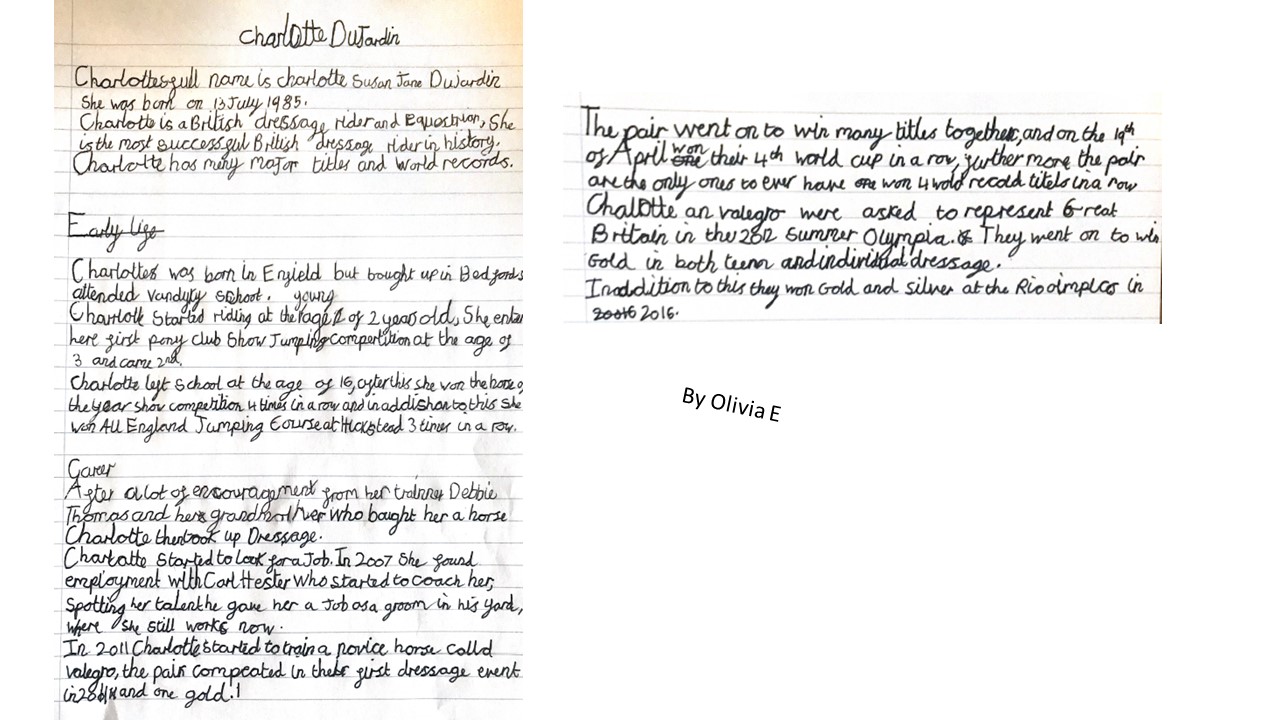 Charlotte Dujardin
Charlottes full name is charlotte Susan Jane Dujardin
She was born on 13 July 1985.
Charlotte is a British dressage rider and Equestrian, She
is the most successful British dressage rider in history.
Charlotte has many major titles and world records.
Early life
Charlottes was born in Enfield but bought up in Bedfords
attended vandyky school. young
Charlotte Started riding at the age of 2 years old, She
here first pony club Show Jumping Compertition at the age of
3 and came 2nd.
Charlotte left School at the age of 16, after this she won the horse of
the year show competition 4 times in a row and in addishon to this She
won All England Jumping Course at Hickstead 3 times in a row.
Career
After a lot of encouragement from her trainner Debbie
Thomas and her grandmother who bought her a horse
Charlotte then took up Dressage.
Charlotte Started to look for a Job. In 2007 She found
employment with Carl Hester Who started to coach her,
Spotting her talent he gave her a Job as a groom in his yard,
where she still works now.
In 2011 Charlotte started to train a novice horse calld
valegro, the pair compeated in their first dressage event
in and one gold.!
The pair went on to win many titles together, and on the 19th
of April won their 4th world cup in a row, further more the pair
are the only ones to ever have won 4 wold recold titels in a row
Challotte an valegro were asked to represent Great
Britain in the 2012 Summer Olympia. They went on to win
Gold in both team and individual dressage.
In addition to this they won Gold and silver at the Rio olmpics in
2016.
By Olivia E